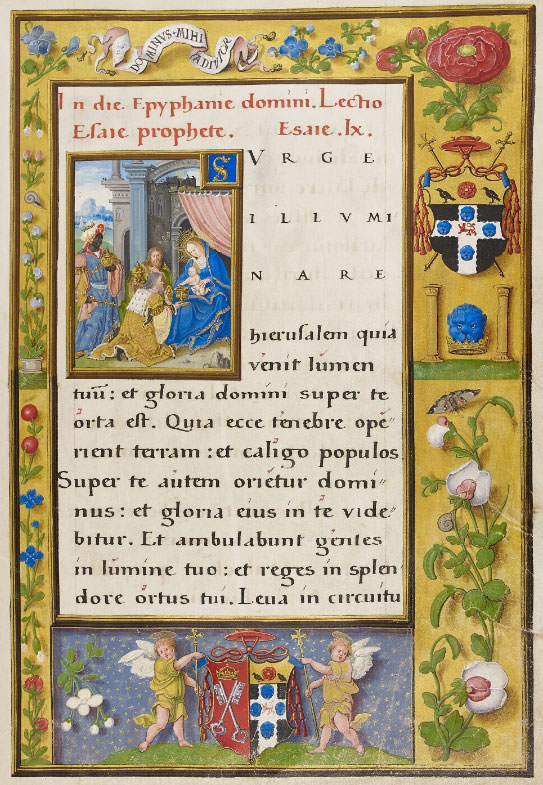 DOMINVS · MIHI
ADIVTOR
In die Epyphanie domini. Lectio
Esaie prophete. Esaie. lx.
SVRGE
ILLVMI
NARE
hierusalem quia
venit lumen
tuū : et gloria domini super te
orta est. Quia ecce tenebre ope-
rient terram : et caligo populos
Super te autem orietur domi-
nus : et gloria eius in te vide-
bitur. Et ambulabunt gentes
in lumine tuo : et reges in splen
dore ortus tui. Leva in circuitu